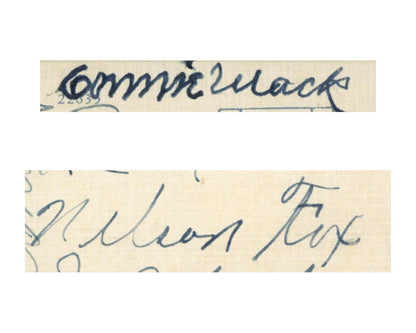 Connie Mack
22635
Nelson Fox